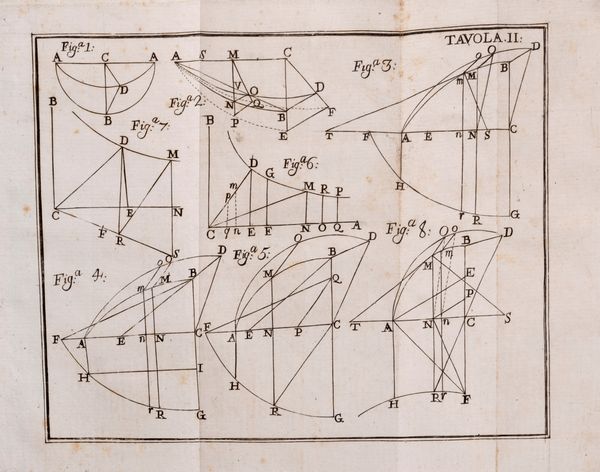 TAVOLA.II:
Fig.a 1:
A C A
D
B
A S M C
V O D
N Q B F
P E
Fig.a 2:
Fig.a 3:
o O D
m M B
T F A E n N S C
H
r R G
Fig.a 7:
B
D M
C E N
F R
S
Fig.a 6:
B
D G
m M R P
p
C q n E F N O Q A
Fig.a 4:
o O D
m M B
F A E n N C
H I
r R G
Fig.a 5:
O D
M B
Q
F A E N P C
H
R G
Fig.a 8:
O o D
M m B
E
P
T A N n C S
H R r F